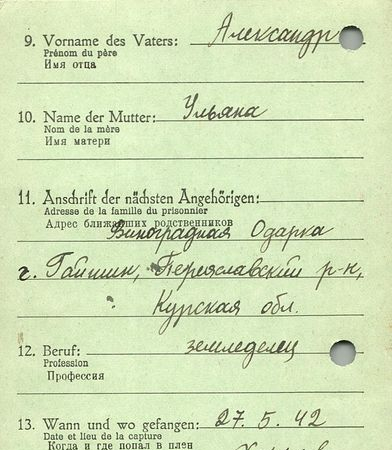 9. Vorname des Vaters: Александр
Prénom du père
Имя отца
10. Name der Mutter: Ульяна
Nom de la mère
Имя матери
11. Anschrift der nächsten Angehörigen:
Adresse de la famille du prisonnier
Адрес ближайших родственников
Виноградная Одарка
г. Гайшин, Переяславский р-н,
Курская обл.
12. Beruf: земледелец
Profession
Профессия
13. Wann und wo gefangen: 27.5.42
Date et lieu de la capture
Когда и где попал в плен